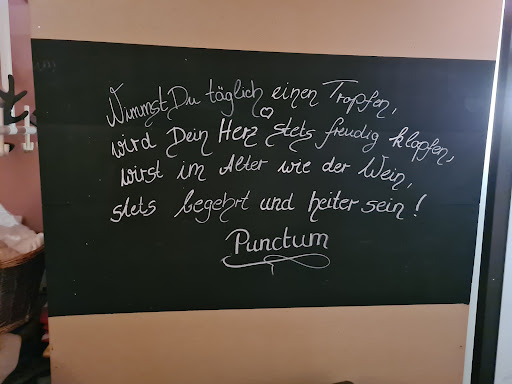 Nimmst Du täglich einen Tropfen,
wird Dein Herz stets freudig klopfen,
wirst im Alter wie der Wein,
stets begehrt und heiter sein!
Punctum